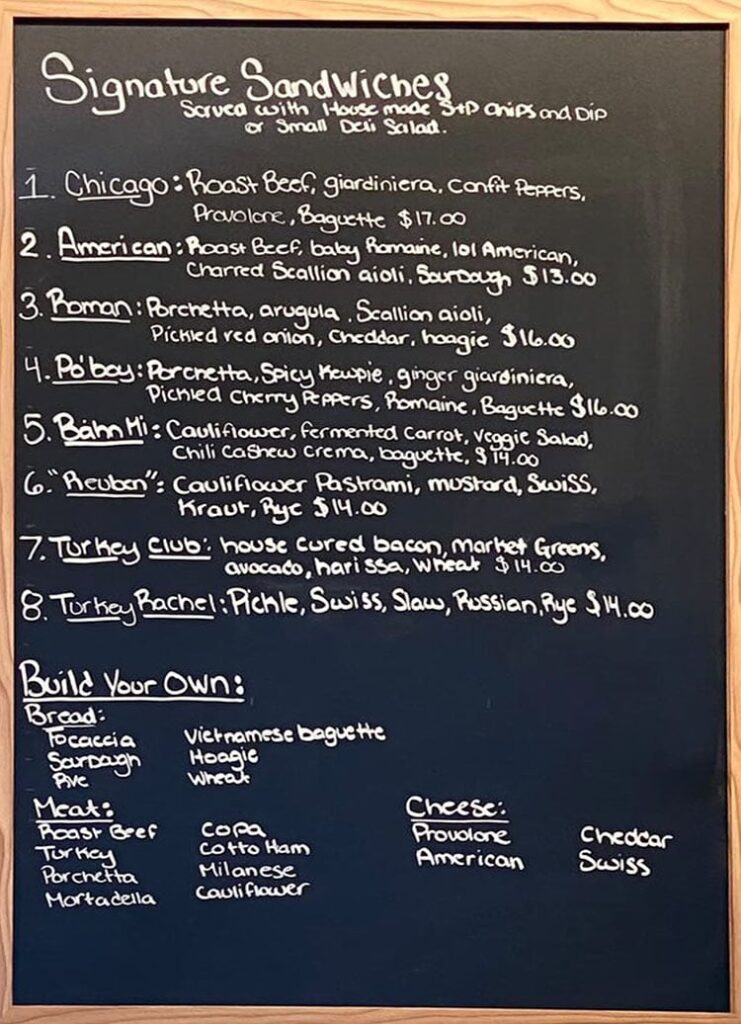 Signature Sandwiches
Served with House made S+P Chips and Dip
or Small Deli Salad.
1. Chicago: Roast Beef, giardiniera, Confit Peppers,
Provolone, Baguette $17.00
2. American: Roast Beef, baby Romaine, lol American,
Charred Scallion aioli, SourDough $13.00
3. Roman: Porchetta, arugula, Scallion aioli,
Pickled red onion, Cheddar, hoagie $16.00
4. Po'boy: Porchetta, Spicy Kewpie, ginger giardiniera,
Pickled Cherry Peppers, Romaine, Baguette $16.00
5. Báhn Mi: Cauliflower, fermented Carrot, Veggie Salad,
Chili Cashew Crema, baguette, $14.00
6. "Reuben": Cauliflower Pastrami, mustard, Swiss,
Kraut, Rye $14.00
7. Turkey Club: house cured bacon, Market Greens,
avocado, harissa, Wheat $14.00
8. Turkey Rachel: Pickle, Swiss, Slaw, Russian, Rye $14.00
Build Your Own:
Bread:
Focaccia Vietnamese baguette
SourDough Hoagie
Rye Wheat
Meat: Cheese:
Roast Beef Copa Provolone Cheddar
Turkey Cotto Ham American Swiss
Porchetta Milanese
Mortadella Cauliflower